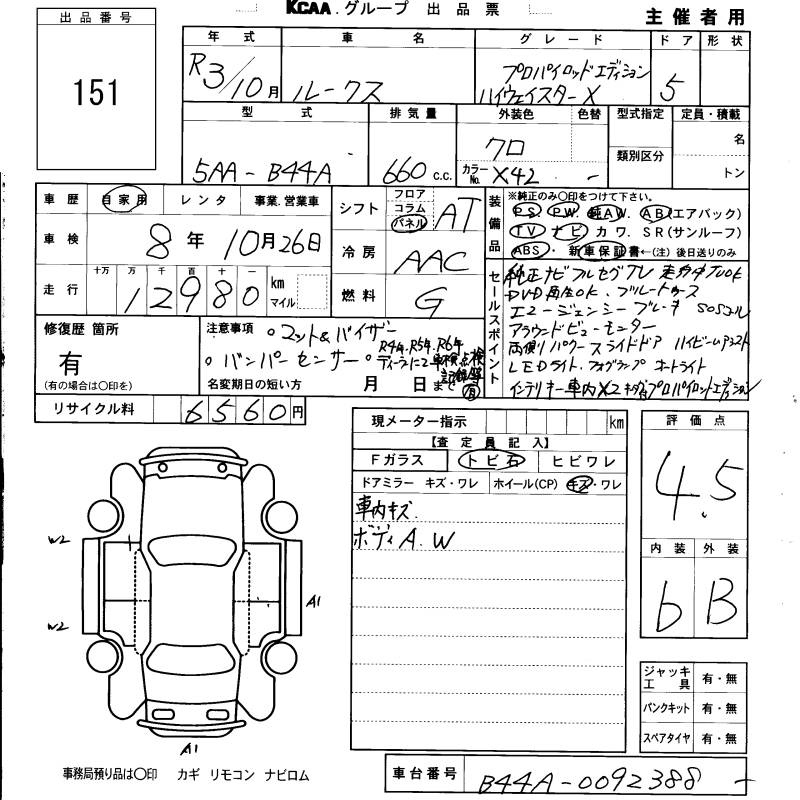 KCAA.グループ 出品票
主催者用
出品番号
151
年式 車名 グレード ドア 形状
R3/10月 ルークス プロパイロットエディション
ハイウェイスターX 5
型式 排気量 外装色 色替 型式指定 定員・積載
5AA-B44A 660 c.c. クロ
カラーNo. X42 -
類別区分 名
トン
車歴 自家用 レンタ 事業.営業車
車検 8年10月26日
走行 十万 万 千 百 十 一
12980 km マイル
シフト フロア コラム パネル AT
冷房 AAC
燃料 G
装備品 ※純正のみ○印をつけて下さい。
PS. PW. 純AW. AB(エアバック)
TV ナビ カワ. SR(サンルーフ)
ABS・ 新車保証書←(注) 後日送りのみ
セールスポイント
純正ナビ フルセグTV 走行中TVOK
DVD再生OK. ブルートゥース
エマージェンシーブレーキ SOSコール
アラウンドビューモニター
両側パワースライドドア ハイビームアシスト
LEDライト. フォグランプ オートライト
インテリキー車内X2 プロパイロットエディション
修復歴 箇所
有
(有の場合は○印を)
注意事項 ○マット&バイザー
○バンパーセンサー ○R4年.R5年.R6年
ディーラーにて点検
記録簿 有
名変期日の短い方 月 日まで
リサイクル料 6560円
現メーター指示 km
【査定員記入】
Fガラス トビ石 ヒビワレ
ドアミラー キズ・ワレ ホイール(CP) キズ・ワレ
車内キズ.
ボディA.W
評価点
4.5
内装 外装
b B
W2
W2
A1
A1
ジャッキ工具 有・無
パンクキット 有・無
スペアタイヤ 有・無
事務局預り品は○印 カギ リモコン ナビロム
車台番号 B44A-0092388